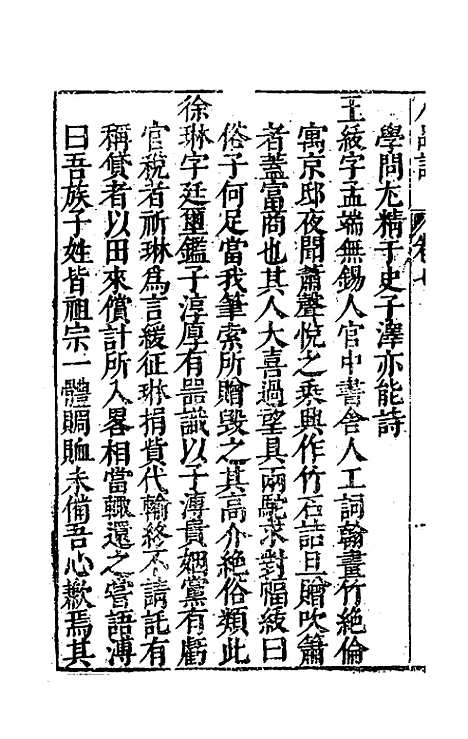 學問尤精于史子澤亦能詩
王紱字孟端無錫人官中書舍人工詞翰畫竹絶倫
寓京邸夜聞蕭聲悅之乘興作竹石詰旦贈吹簫
者蓋富商也其人大喜過望具兩駝求對幅紱曰
俗子何足當我筆索所贈毀之其高介絶俗類此
徐琳字廷璽鑑子淳厚有噐識以子溥貴姻黨有虧
官稅者祈琳爲言緩征琳捐貲代輸終不請託有
稱貸者以田來償計所入畧相當輙還之嘗語溥
曰吾族子姓皆祖宗一體賙賉未備吾心歉焉其